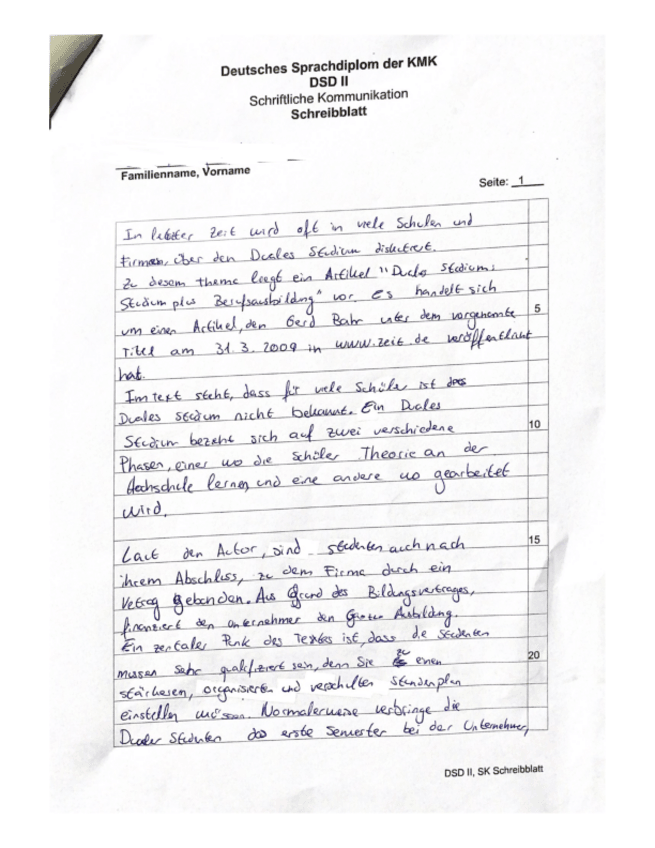 Deutsches Sprachdiplom der KMK
DSD II
Schriftliche Kommunikation
Schreibblatt
Familienname, Vorname
Seite: 1
In letzter Zeit wird oft in viele Schulen und
Firmen, über den Duales Studium diskutiert.
Zu desem theme liegt ein Artikel "Duales Studium:
Studium plus Berufsausbildung" vor. Es handelt sich
um einen Artikel, den Gerd Bahr unter dem vorgenannte 5
Titel am 31.3.2009 in www.zeit.de veröffentlicht
hat.
Im text steht, dass für viele Schüler ist das
Duales Studium nicht bekannt. Ein Duales
Studium bezieht sich auf zwei verschiedene 10
Phasen, einer wo die Schüler Theorie an der
Hochschule lernen, und eine andere wo gearbeitet
wird.
Laut den Autor, sind studenten auch nach 15
ihrem Abschluss, zu dem Firma durch ein
Vetrag gebunden. Aus Grund des Bildungsvertrages,
finanziert den unternehmer den Ausbildung.
Ein zentaler Punk des Textes ist, dass die Studenten
mussen sehr qualifiziert sein, denn Sie zu einen 20
stärkesen, organisierten und verschulten Stundenplan
einstellen müssen. Normalerweise verbringe die
Dualer Studenten das erste Semester bei der Unternehmer,
DSD II, SK Schreibblatt